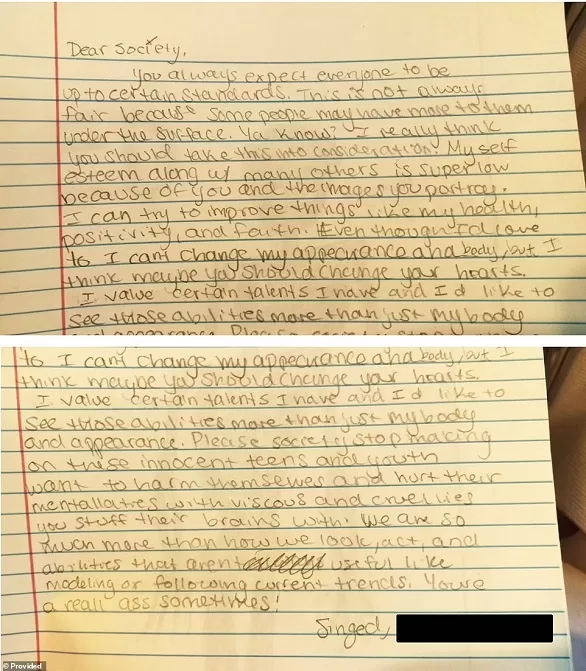 Dear Society,
You always expect everyone to be
up to certain standards. This is not always
fair because some people may have more to them
under the surface. Ya know? I really think
you should take this into consideration. My self
esteem along w/ many others is super low
because of you and the images you portray.
I can try to improve things like my health,
positivity, and faith. Even though I'd love
to I cant change my appearance and body, but I
think maybe ya should change your hearts.
I value certain talents I have and I'd like to
see those abilities more than just my body
and appearance. Please society stop
to I cant change my appearance and body, but I
think maybe ya should change your hearts.
I value certain talents I have and I'd like to
see those abilities more than just my body
and appearance. Please society stop making
on these innocent teens and youth
want to harm themselves and hurt their
mentallaties with viscous and cruel lies
you stuff their brains with. We are so
much more than how we look, act, and
abilities that arent useful like
modeling or following current trends. You're
a reall ass sometimes!
Singed,
© Provided